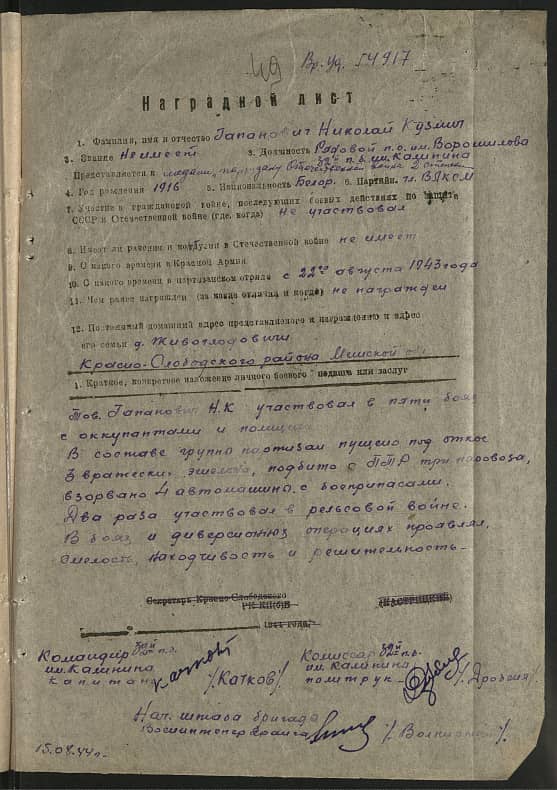 49 Вр. уд. 54917
Наградной лист
1. Фамилия, имя и отчество Гапанович Николай Кузмич
2. Звание Не имеет 3. Должность Рядовой п.о. им. Ворошилова
32й п.б. им. Калинина
Представляется к медали, партизану Отечественной войны 2 степени
4. Год рождения 1916 5. Национальность Белор. 6. Партийн. чл. ВЛКСМ
7. Участие в гражданской войне, последующих боевых действиях по защите
СССР и Отечественной войне (где, когда) не участвовал
8. Имеет ли ранения и контузии в Отечественной войне не имеет
9. С какого времени в Красной Армии
10. С какого времени в партизанском отряде с 22го августа 1943 года
11. Чем ранее награжден (за какие отличия и когда) не награжден
12. Постоянный домашний адрес представляемого к награждению и адрес
его семьи д. Живоглодовичи
Красно-Слободского района Минской
1. Краткое, конкретное изложение личного боевого подвига или заслуг
Тов. Гапанович Н.К участвовал в пяти боях
с оккупантами и
В составе группы партизан пущено под откос
3 вражеских эшелона, подбито с ПТР три паровоза,
взорвано 4 автомашины с боеприпасами.
Два раза участвовал в рельсовой войне.
В боях и диверсионых операциях проявлял
смелость, находчивость и решительность-
Секретарь Красно-Слободского
РК КП(б)Б
1944 года.
Командир 32й п.б.
им. Калинина
капитан /Катков/
Комиссар 32й п.б.
им. Калинина
политрук /Дробеня/
Нач. штаба бригады
Воениинтенр. 3 ранга
15.08.44 г.